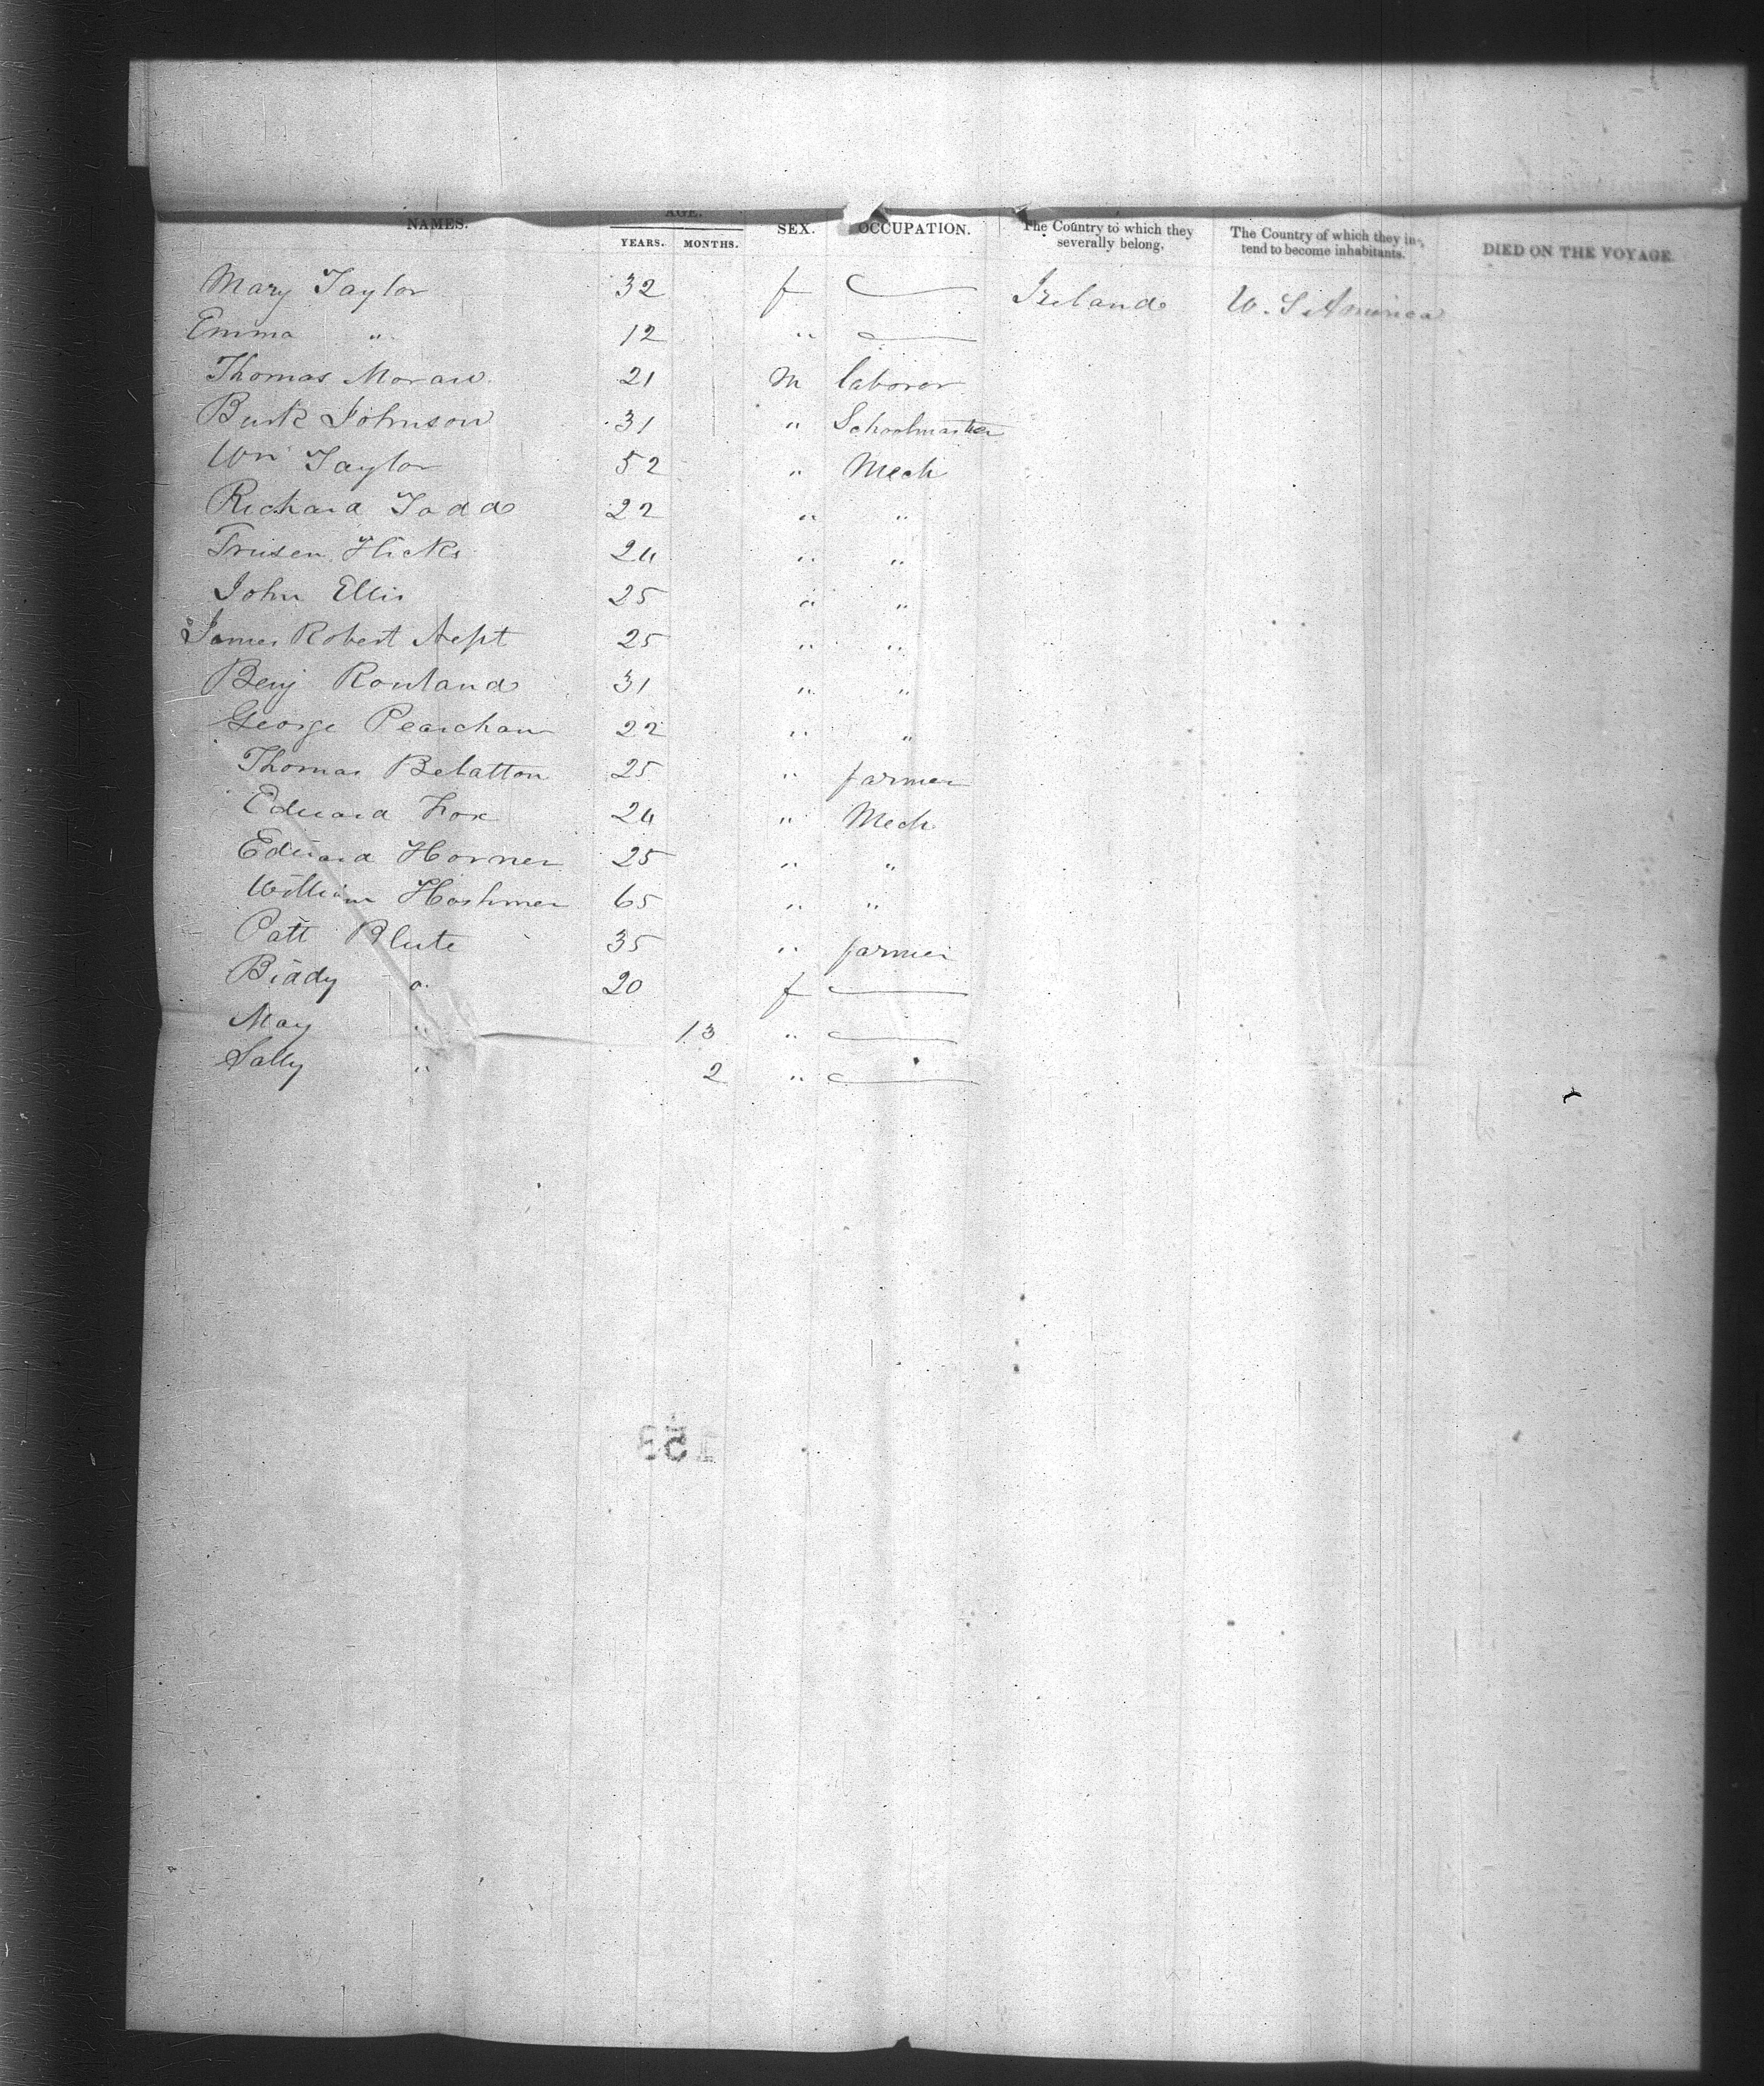 NAMES. AGE. YEARS. MONTHS. SEX. OCCUPATION. The Country to which they severally belong. The Country of which they intend to become inhabitants. DIED ON THE VOYAGE.
Mary Taylor 32 f Ireland U. S America
Emma " 12 "
Thomas Moran 21 m laborer
Burk Johnson 31 " Schoolmaster
Wm Taylor 52 " Mech
Richard Todd 22 " "
Hicks 24 " "
John Ellis 25 " "
James Robert 25 " "
Benj Rowland 31 " "
George 22 " "
Thomas Belatton 25 " farmer
Edward Fox 24 " Mech
Edward Horner 25 " "
William Hoshmer 65 " "
Patt Blute 35 " farmer
Biddy " 20 f
May " 13 "
Sally " 2 "
153